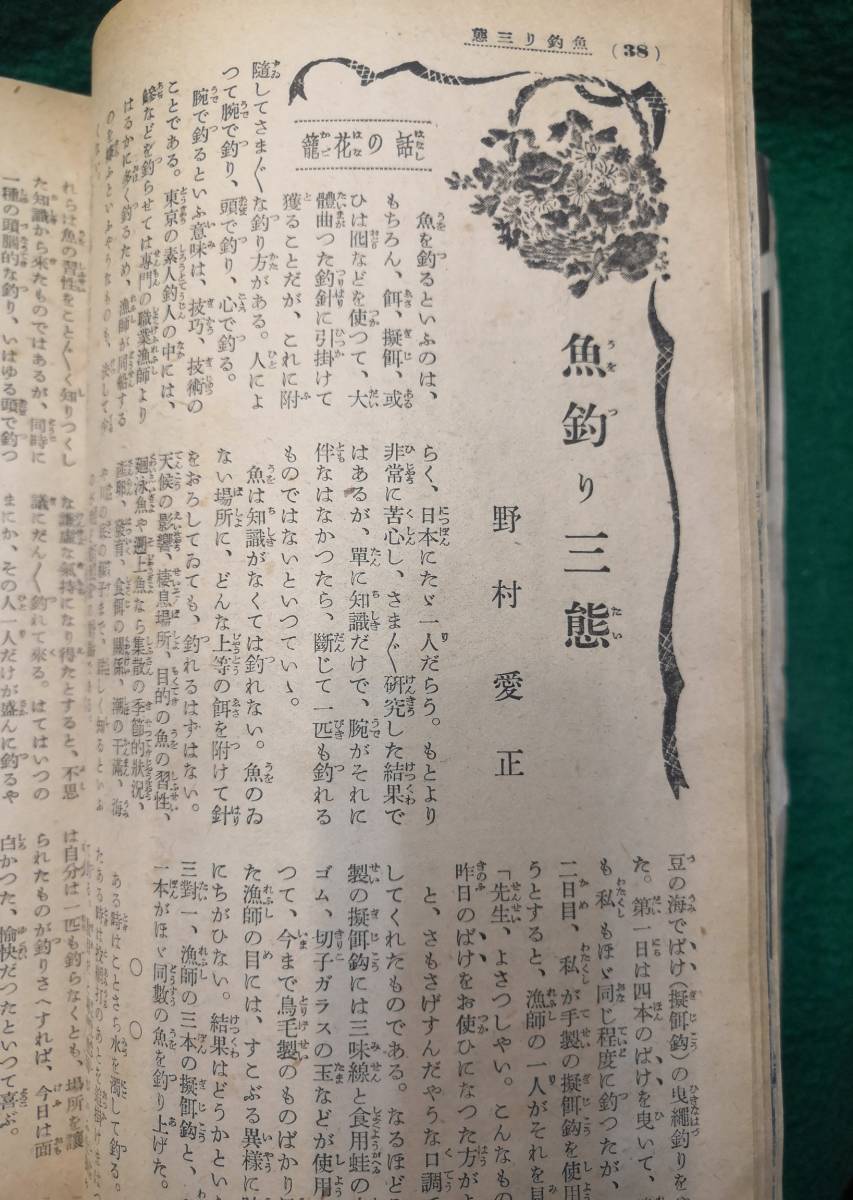 魚釣り三態
(38)
籠花の話
魚釣り三態
野村愛正
魚を釣るといふのは、
もちろん、餌、擬餌、或
ひは囮などを使つて、大
體曲つた釣針に引掛けて
獲ることだが、これに附
隨してさま〴〵な釣り方がある。人によ
つて腕で釣り、頭で釣り、心で釣る。
腕で釣るといふ意味は、技巧、技術の
ことである。東京の素人釣人の中には、
などを釣らせては專門の職業漁師より
はるかに多く釣るため、漁師が同船する
らく、日本にたゞ一人だらう。もとより
非常に苦心し、さま〴〵研究した結果で
はあるが、單に知識だけで、腕がそれに
伴なはなかつたら、斷じて一匹も釣れる
ものではないといつていゝ。
魚は知識がなくては釣れない。魚のゐ
ない場所に、どんな上等の餌を附けて針
をおろしてゐても、釣れるはずはない。
天候の影響、棲息場所、目的の魚の習性、
廻泳魚や遡上魚なら集散の季節的狀況、
食餌の關係、潮の干滿、海
豆の海でばけ(擬餌鈎)の曳繩釣りを
た。第一日は四本のばけを曳いて、
も私もほゞ同じ程度に釣つたが、
二日目、私が手製の擬餌鈎を使用
うとすると、漁師の一人がそれを見
「先生、よさつしやい。こんなもの
昨日のばけをお使ひになつた方がよ
と、さもさげすんだやうな口調で
してくれたものである。なるほど
製の擬餌鈎には三味線と食用蛙の
ゴム、切子ガラスの玉などが使用
つて、今まで鳥毛製のものばかり
た漁師の目には、すこぶる異樣に
にちがひない。結果はどうかといへ
三對一、漁師の三本の擬餌鈎と、
一本がほゞ同數の魚を釣り上げた。
〇 〇
ある時はことさら水を濁して釣る。
れらは魚の習性をこと〴〵く知りつくし
た知識から來たものではあるが、同時に
一種の頭腦的な釣り、いはゆる頭で釣つ
な謙虚な氣持になり得たとすると、不思
議にだん〴〵釣れて來る。はてはいつの
まにか、その人一人だけが盛んに釣るや
は自分は一匹も釣らなくとも、場所を讓
られたものが釣りさへすれば、今日は面
白かつた、愉快だつたといつて喜ぶ。